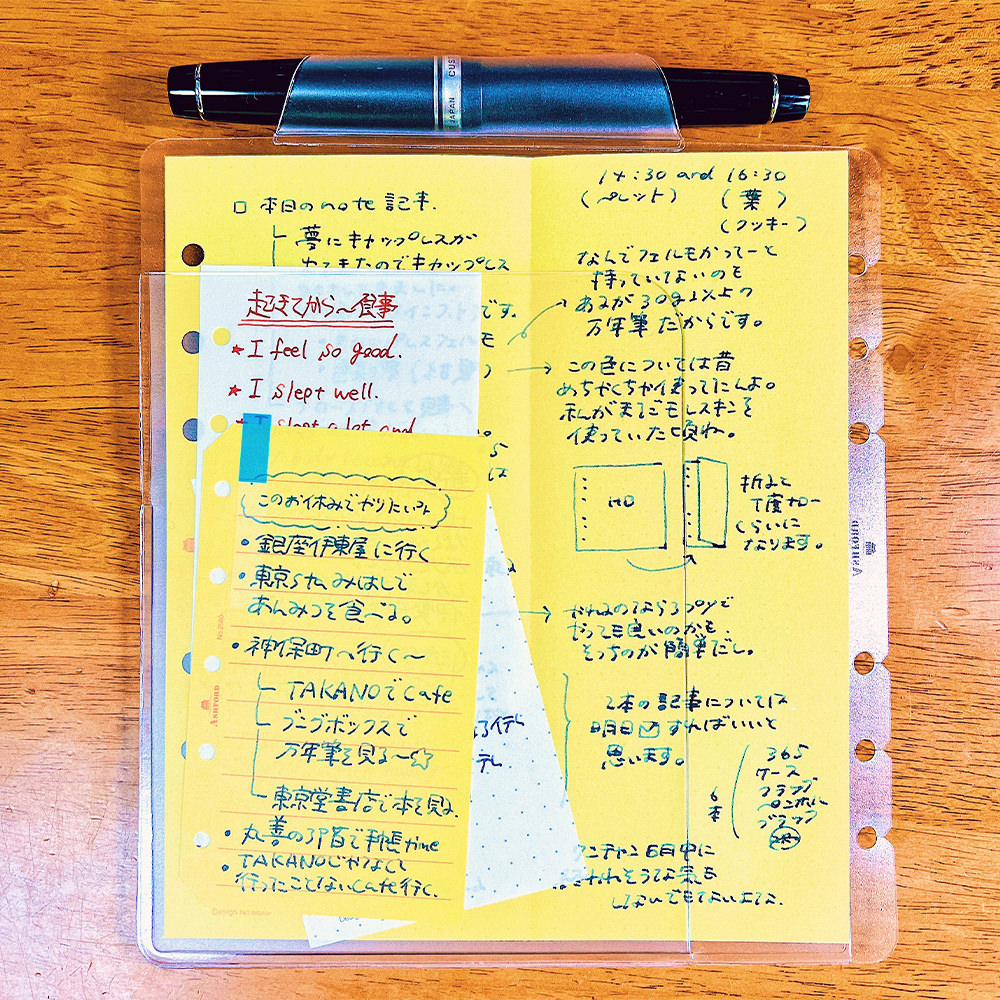 JAPAN CUS
□ 本日のnote 記事.
夢にキャップレスが
でてきたのでキャップレス
です。
も
は
起きてから〜食事
★ I feel so good.
★ I slept well.
★ I slept a lot and
このお休みでやりたいコト
・銀座伊東屋に行く
・東京 みはしで
あんみつを食べる。
・神保町へ行く〜
TAKANOでCafe
ブングボックスで
万年筆を見る〜☆
東京堂書店で本を見る.
・丸善の3F席で手帳time
・TAKANOじゃなくて
行ったことないCafe行く.
No.2985
ASHFORD
Design No.
14:30 and 16:30
(ペレット) (葉)
(クッキー)
なんでフェルモかってーと
持っていてないのも
あるが30g以上の
万年筆だからです。
→ この色については昔
めちゃくちゃ使ってたんよ。
私がまだモレスキンを
使っていた頃ね。
折ると
丁度
くらいに
なります。
ASHFORD
→
やっても良いのかも.
そっちのが簡単だし。
2本の記事については
明日☑すればいいと
思います。
365
ケース
フラップ
ペンホル
ブラック
6本
6日中に
そうな気も
しないでもないよてな.